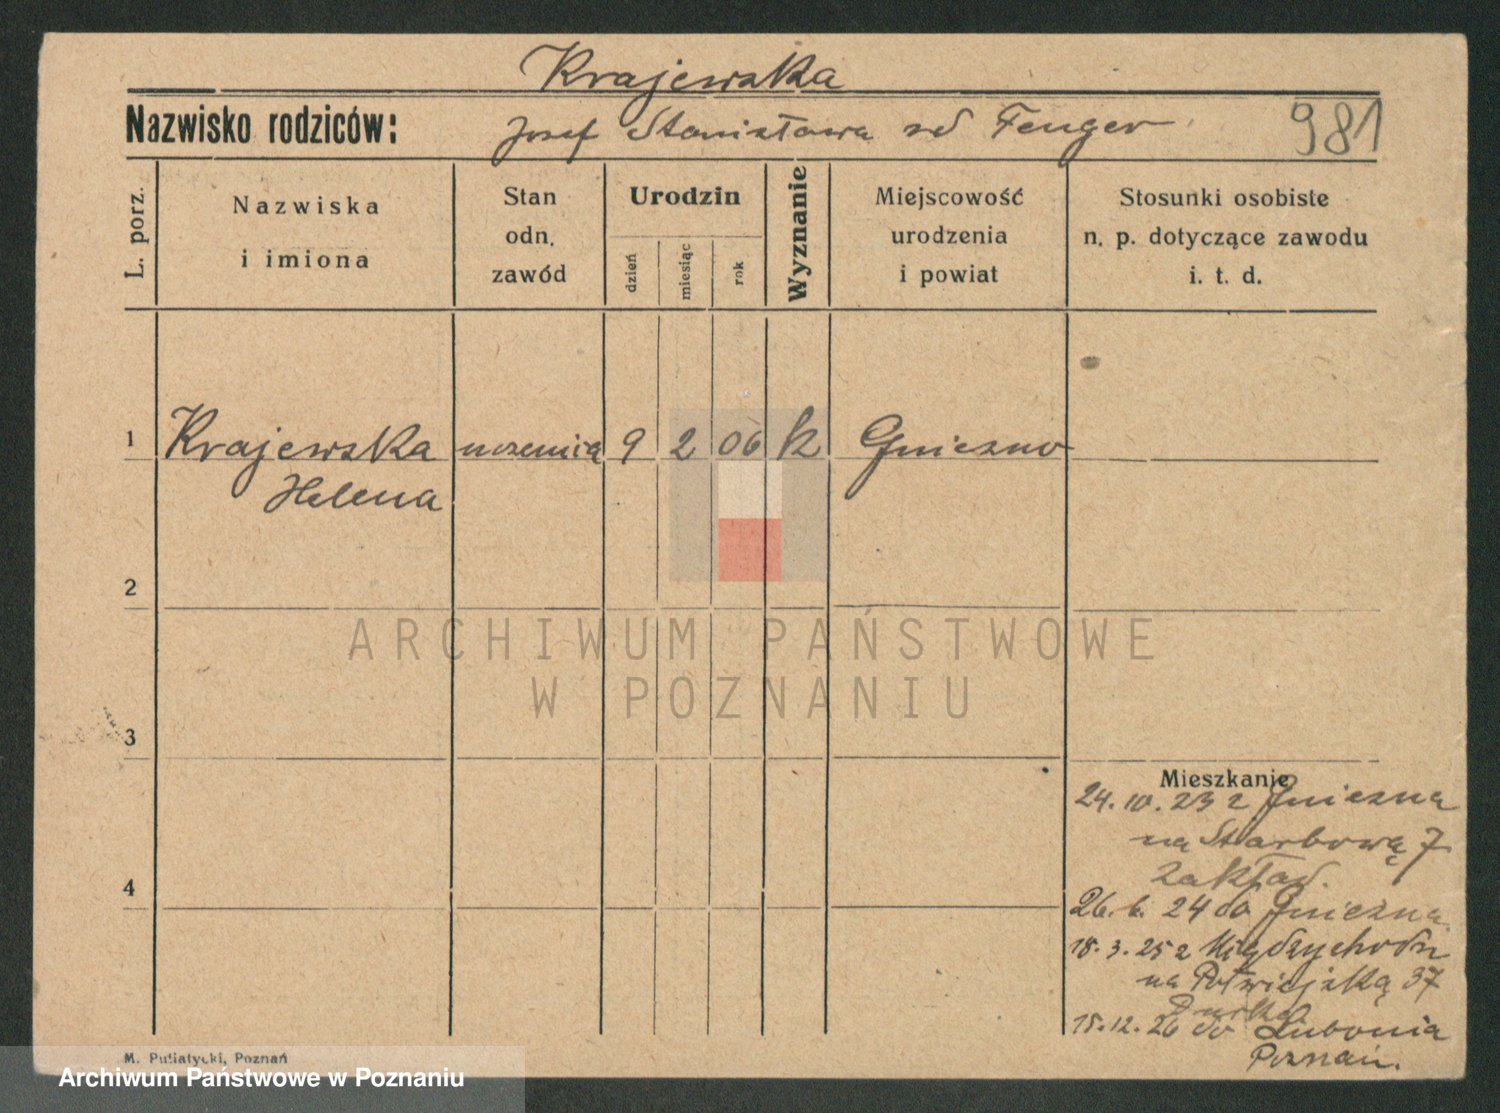 Krajewska
Nazwisko rodziców: Josef Stanisława zd Fenger 981
L. porz.
Nazwiska
i imiona
Stan
odn.
zawód
Urodzin
dzień
miesiąc
rok
Wyznanie
Miejscowość
urodzenia
i powiat
Stosunki osobiste
n. p. dotyczące zawodu
i. t. d.
1 Krajewska 9 2 06 k Gniezno
Helena
2
ARCHIWUM PAŃSTWOWE
W POZNANIU
3
Mieszkanie
24.10.23 z Gniezna
na Skarbową 7
zakład.
4
26.6.24 do Gniezna
18.3.25 z Międzychodu
na Półwiejską 37
15.12.26 do Lubonia
Poznań.
M. Putiatycki, Poznań
Archiwum Państwowe w Poznaniu